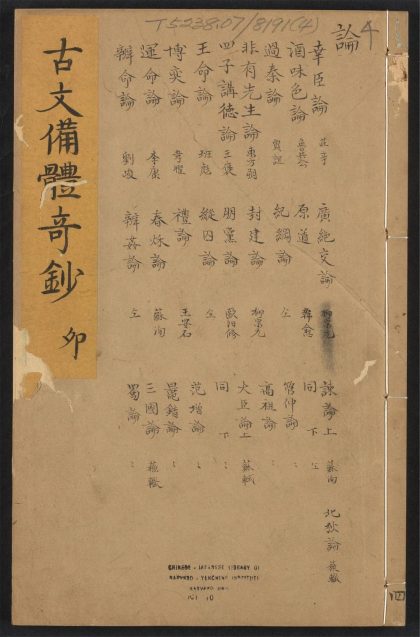 T5238.07/8191(4)
論 4
幸臣論 莊辛 廣絶交論 諫論上 蘇洵 北狄論 蘇轍
酒味色論 魯共公 原道 韓愈 同 下 仝
過秦論 賈誼 紀綱論 仝 管仲論
非有先生論 東方朔 封建論 柳宗元 高祖論
四子講德論 王褒 朋黨論 歐陽修 大臣論上 蘇軾
王命論 班彪 縱囚論 仝 同 下
博奕論 韋曜 禮論 王安石 范增論
運命論 李康 春秋論 蘇洵 鼂錯論
辯命論 劉峻 辨姦論 仝 三國論 蘇轍
蜀論
古文備體奇鈔 卯
CHINESE - JAPANESE LIBRARY OF
HARVARD - YENCHING INSTITUTE
四